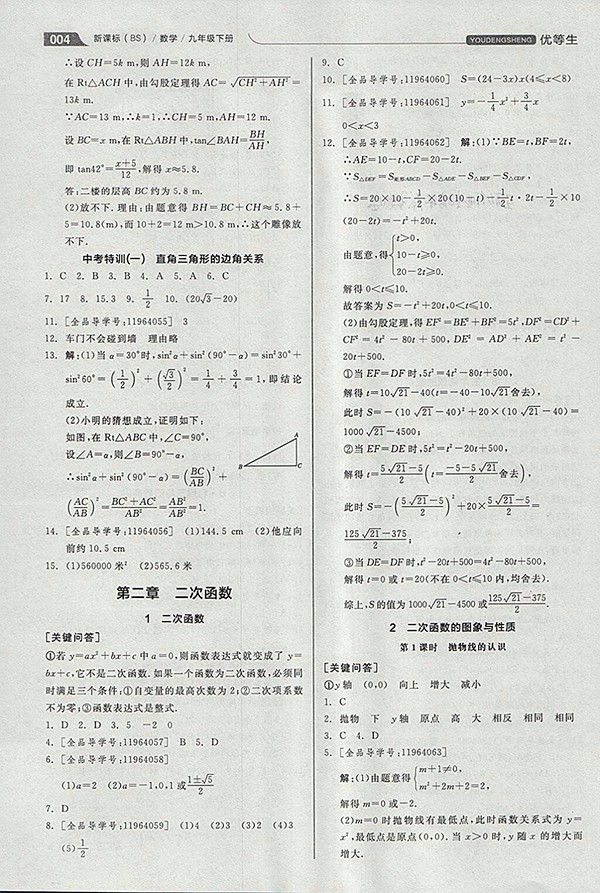 004 新课标(BS)/数学/九年级下册
YOUDENGSHENG 优等生
∴设CH=5k m,则AH=12k m,
在Rt△ACH中,由勾股定理得AC=√(CH²+AH²)=
13k m.
∵AC=13 m,∴k=1,∴CH=5 m,AH=12 m.
设BC=x m,在Rt△ABH中,tan∠BAH=BH/AH,
即tan42°=(x+5)/12,解得x≈5.8.
答:二楼的层高BC约为5.8 m.
(2)放不下.理由:由题意得BH=BC+CH≈5.8+
5=10.8(m),而10+2=12 m>10.8 m,∴这个雕像放
不下.
中考特训(一) 直角三角形的边角关系
1. C 2. B 3. B 4. A 5. A 6. C
7. 17 8. 15.3 9. 1/2 10. (20√3-20)
11. [全品导学号:11964055] 3
12. 车门不会碰到墙 理由略
13. 解:(1)当α=30°时,sin²α+sin²(90°-α)=sin²30°+
sin²60°=(1/2)²+(√3/2)²=1/4+3/4=1,即结论
成立.
(2)小明的猜想成立,证明如下:
如图,在Rt△ABC中,∠C=90°,
设∠A=α,则∠B=90°-α,
∴sin²α+sin²(90°-α)=(BC/AB)²+
(AC/AB)²=(BC²+AC²)/AB²=AB²/AB²=1.
A
B C
14. [全品导学号:11964056] (1)144.5 cm (2)他应向
前约10.5 cm
15. (1)560000米² (2)565.6米
第二章 二次函数
1 二次函数
[关键问答]
①若y=ax²+bx+c中a=0,则函数表达式就变成了y=
bx+c,它不是二次函数.如果一个函数为二次函数,必须同
时满足三个条件:①自变量的最高次数为2;②二次项系数
不为零;③函数表达式是整式.
1. D 2. D 3. 5 -2 0
4. [全品导学号:11964057] B 5. D
6. [全品导学号:11964058]
(1)a=2 (2)a=-1,0,1或(1±√5)/2
7. D
8. [全品导学号:11964059] (1)4 (2)3 (3)2 (4)3
(5)1/2
9. C
10. [全品导学号:11964060] S=(24-3x)x(4≤x<8)
11. [全品导学号:11964061] y=-1/4x²+3/4x
0<x<3
12. [全品导学号:11964062] 解:(1)∵BE=t,BF=2t,
∴AE=10-t,CF=20-2t.
∵S△DEF=S矩形ABCD-S△ADE-S△BEF-S△CDF,
∴S=20×10-1/2×20(10-t)-1/2t·2t-1/2×10
(20-2t)=-t²+20t.
由题意,得{t>0, 10-t≥0, 20-2t≥0.
解得0<t≤10.
故答案为S=-t²+20t,0<t≤10.
(2)由勾股定理,得EF²=BE²+BF²=5t²,DF²=CD²+
CF²=4t²-80t+500,DE²=AD²+AE²=t²-
20t+500.
①当EF=DF时,5t²=4t²-80t+500,
解得t=10√21-40(t=-40-10√21舍去),
此时S=-(10√21-40)²+20×(10√21-40)=
1000√21-4500;
②当EF=DE时,5t²=t²-20t+500,
解得t=(5√21-5)/2(t=(-5-5√21)/2舍去),
此时S=-((5√21-5)/2)²+20×(5√21-5)/2=
(125√21-375)/2;
③当DE=DF时,t²-20t+500=4t²-80t+500,
解得t=0或t=20(不在0<t≤10内,均舍去).
综上,S的值为1000√21-4500或(125√21-375)/2.
2 二次函数的图象与性质
第1课时 抛物线的认识
[关键问答]
①y轴 (0,0) 向上 增大 减小
1. C
2. 抛物 下 y轴 原点 高 大 相反 相同 相同
3. C 4. D
5. [全品导学号:11964063]
解:(1)由题意得{m+1≠0, m²+2m+2=2,
解得m=0或-2.
(2)m=0时抛物线有最低点,此时函数关系式为y=
x²,最低点是原点(0,0).当x>0时,y随x的增大而
增大.